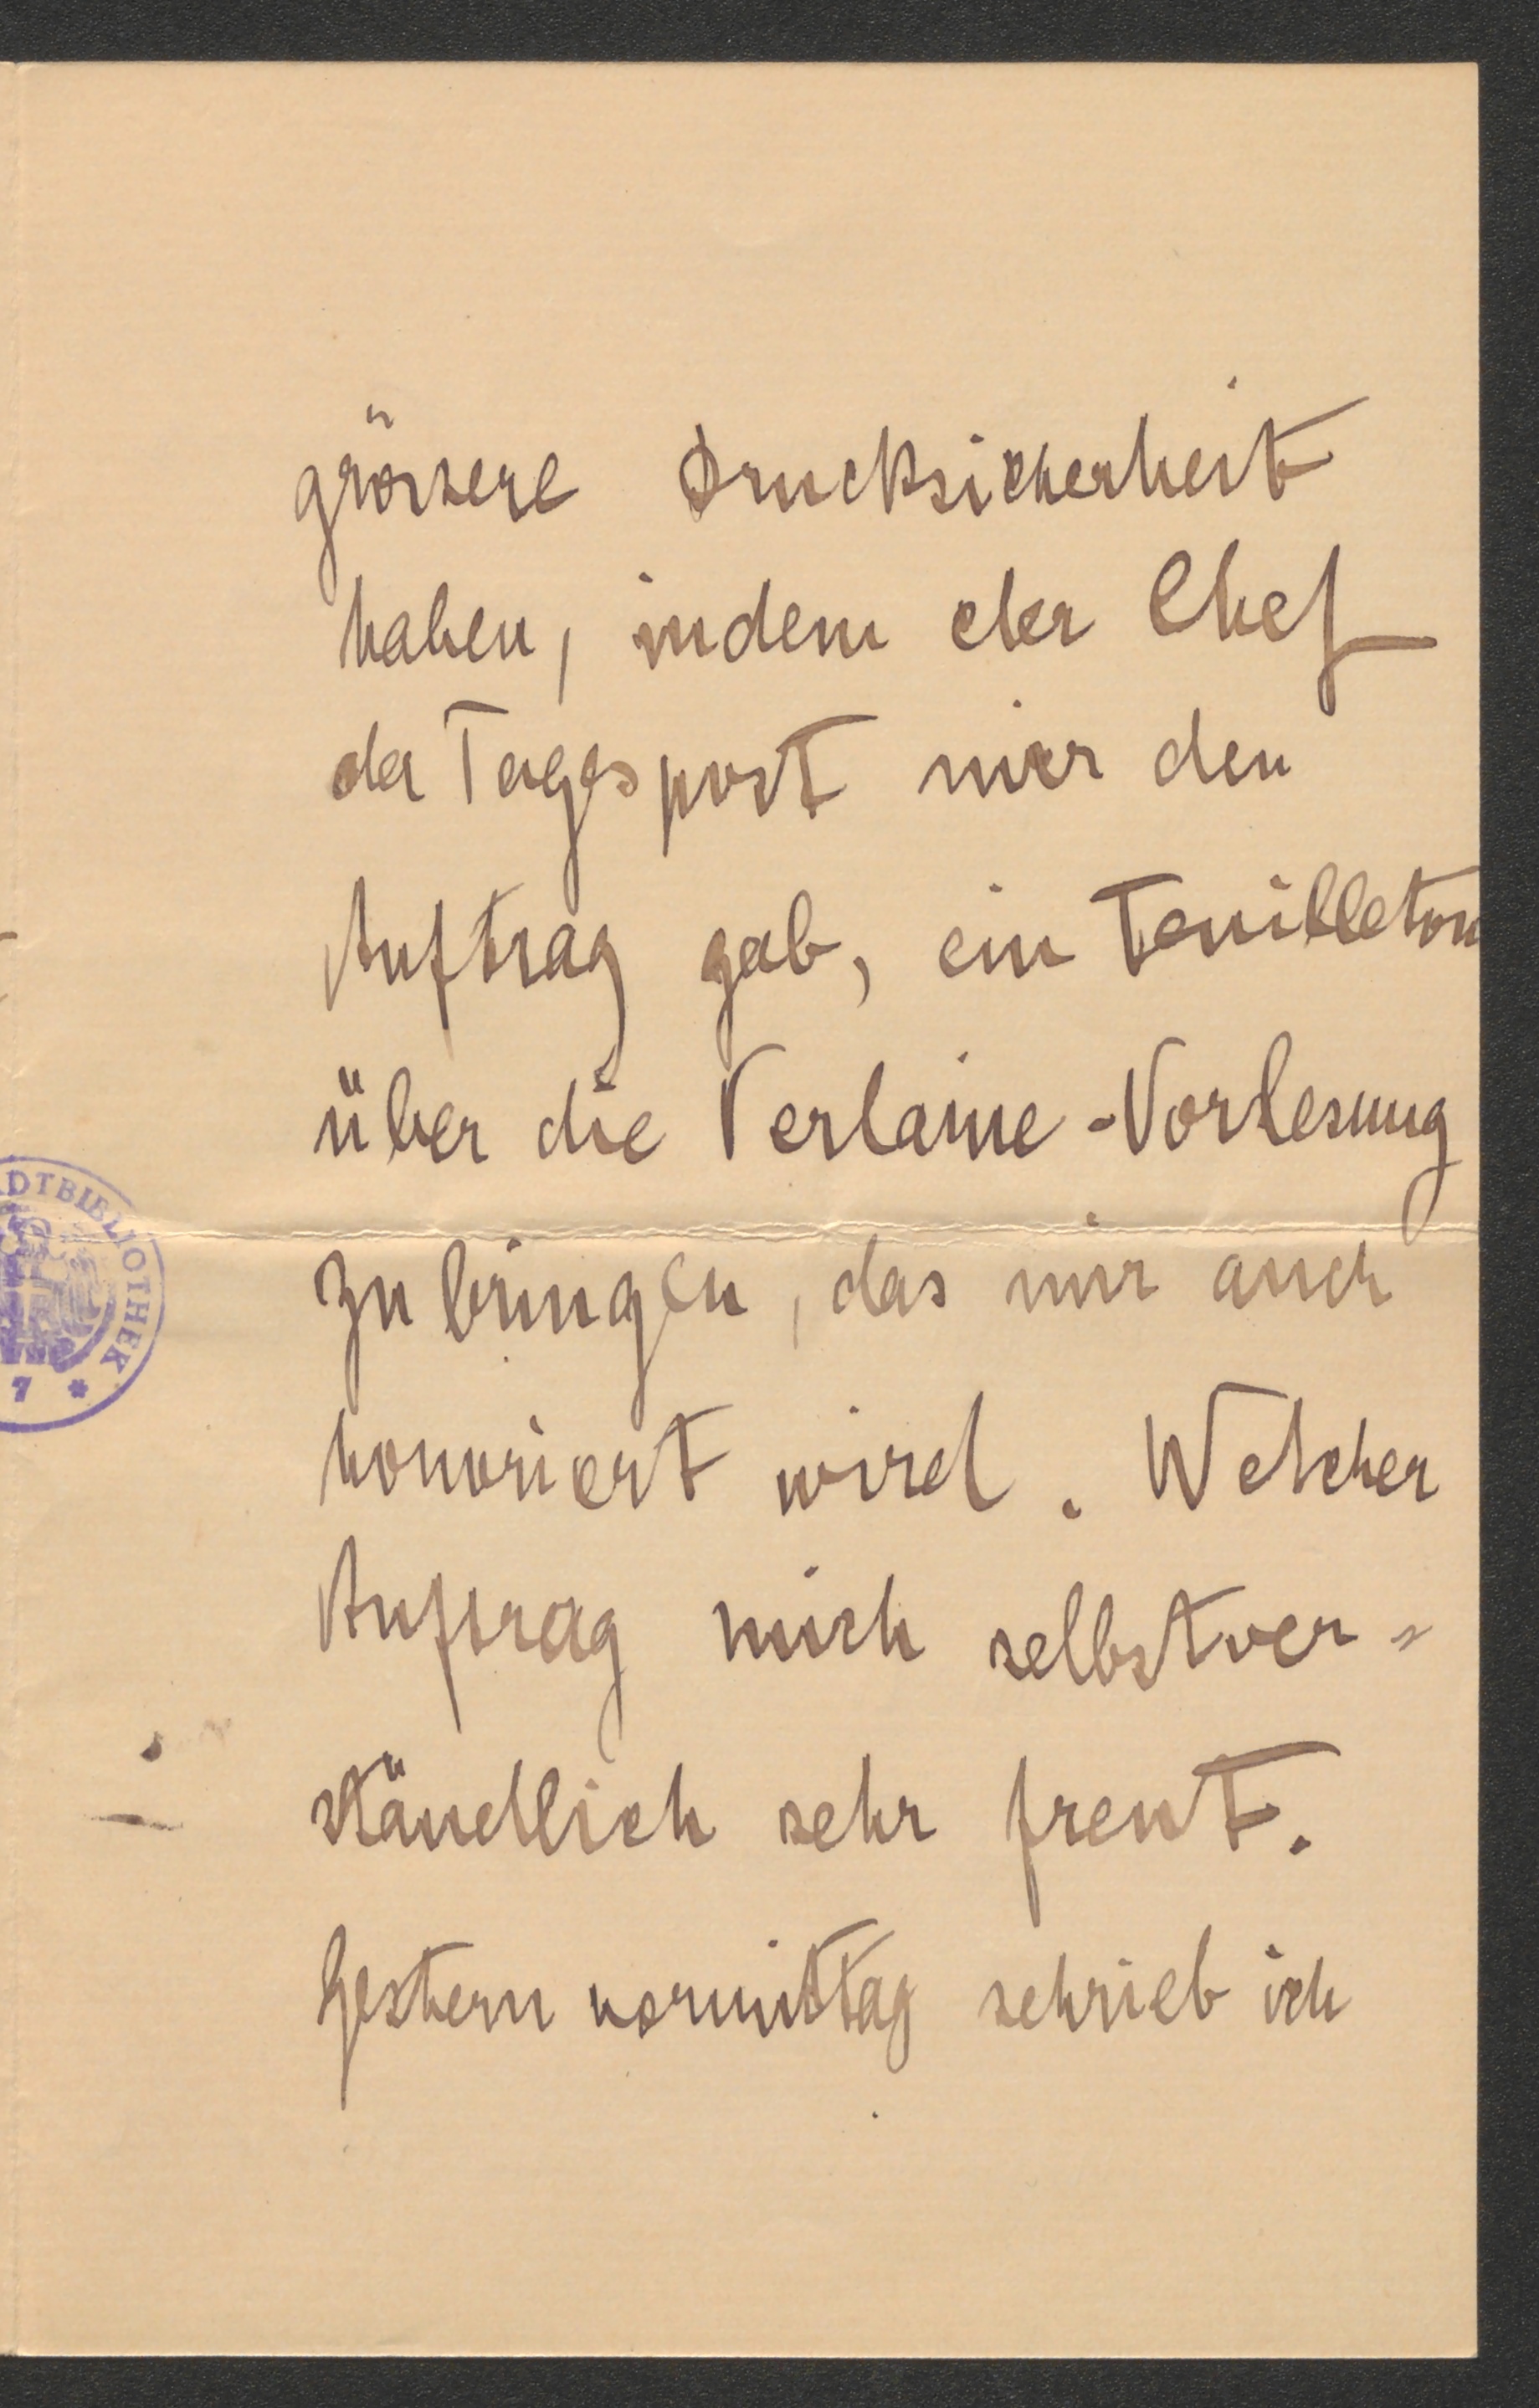 grössere Drucksicherheit
haben, indem der Chef
der Tagespost mir den
Auftrag gab, ein Feuilleton
über die Verlaine-Vorlesung
zu bringen, das mir auch
honoriert wird. Welcher
Auftrag mich selbstver=
ständlich sehr freut.
Gestern vormittag schrieb ich
DTBIBLIOTHEK
7 *